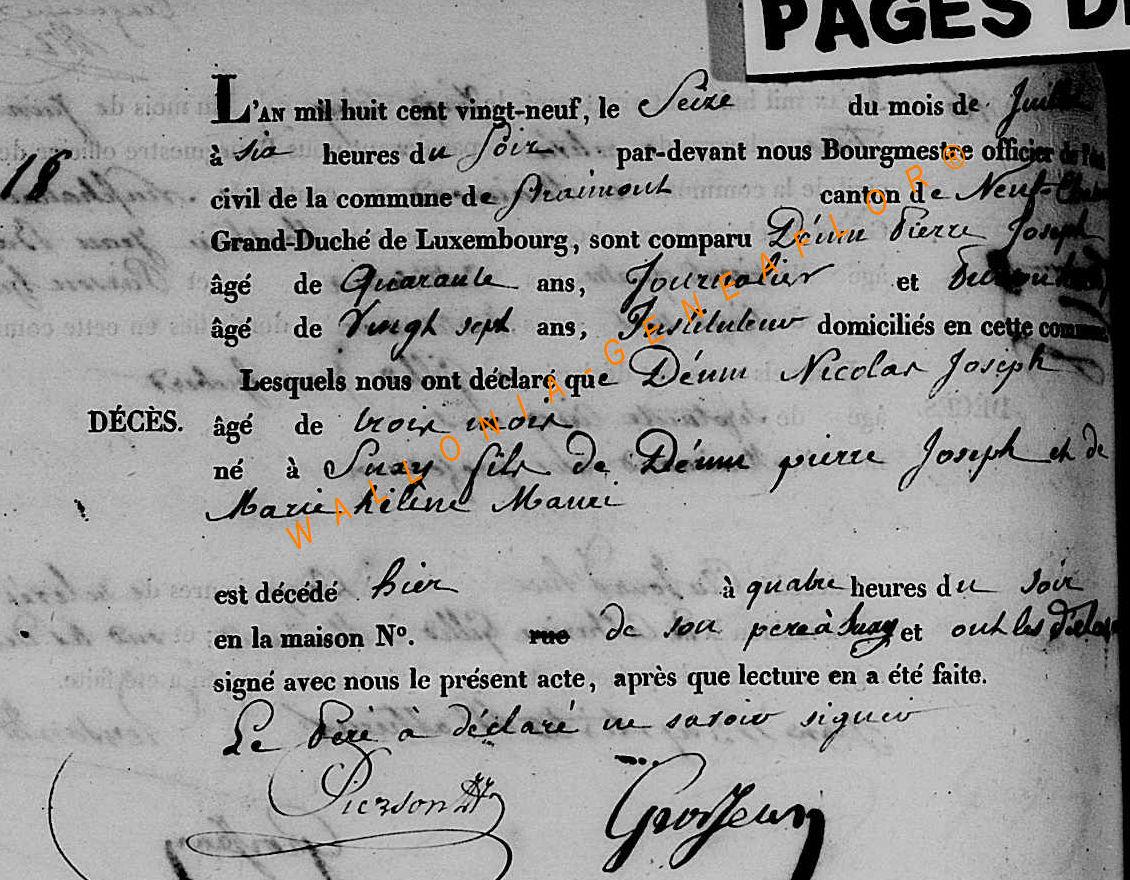 PAGES D
L'AN mil huit cent vingt-neuf, le Seize du mois de Juillet
18
à six heures du Soir par-devant nous Bourgmestre officier de l'état
civil de la commune de Straimont canton de Neuf-Chat
Grand-Duché de Luxembourg, sont comparu Pierre Joseph
âgé de Quarante ans, Journalier et
âgé de Vingt sept ans, Instituteur domiciliés en cette commune
Lesquels nous ont déclaré que Nicolas Joseph
DÉCÈS. âgé de trois mois
né à Suxy fils de pierre Joseph et de
Marie hélène
est décédé hier à quatre heures du soir
en la maison Nº. rue de son pere à Suxy et ont les
signé avec nous le présent acte, après que lecture en a été faite.
Le Père à déclaré ne savoir signer
Pierson
WALLONIA-GENEAFLOR®